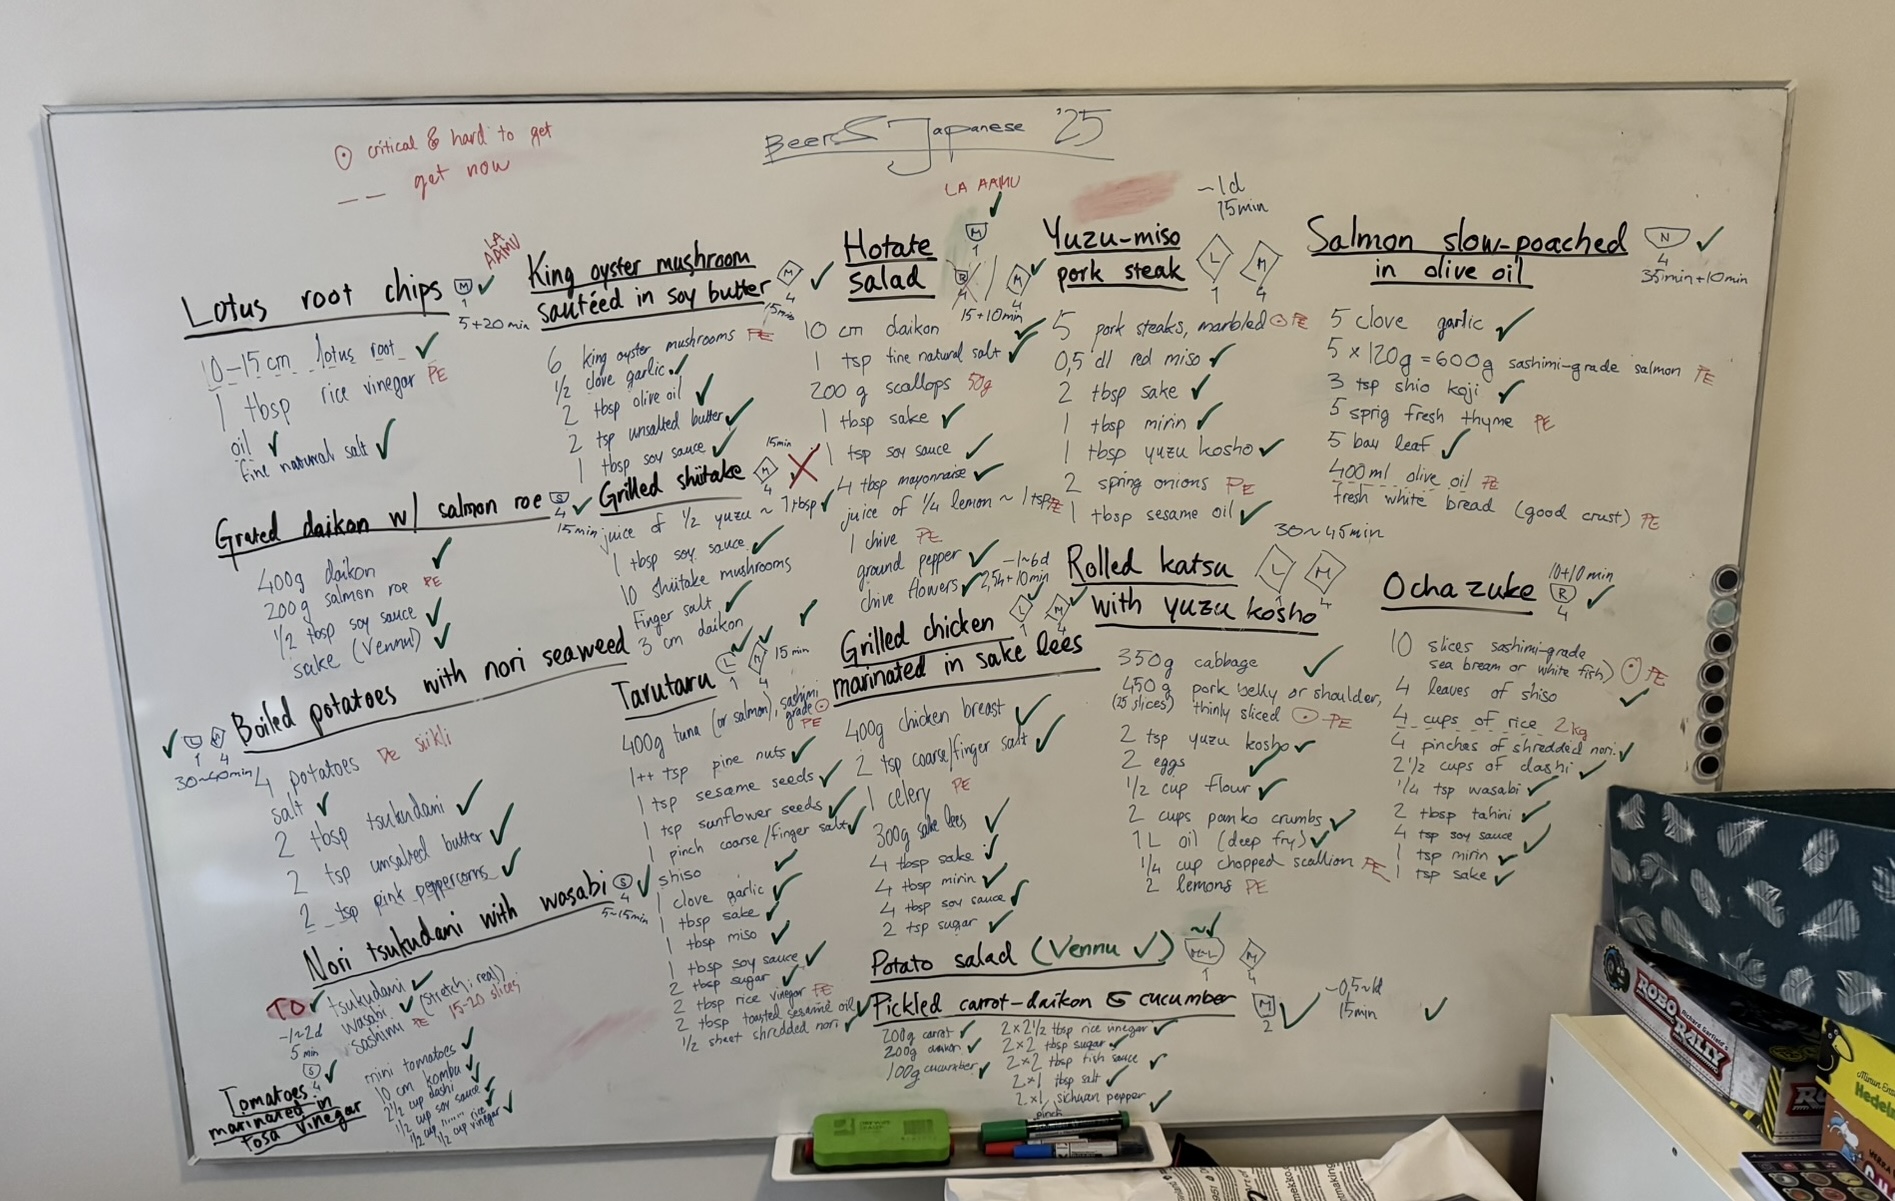 Beer & Japanese '25
critical & hard to get
-- get now
Lotus root chips
M
1
LA AAMU
5+20min
10-15 cm lotus root
1 tbsp rice vinegar PE
oil
fine natural salt
King oyster mushroom
sautéed in soy butter
M
4
15min
6 king oyster mushrooms PE
1/2 clove garlic
2 tbsp olive oil
2 tsp unsalted butter
1 tbsp soy sauce
Hotate
salad
LA AAMU
M
1
R
4
M
4
15+10min
10 cm daikon
1 tsp fine natural salt
200 g scallops 50g
1 tbsp sake
1 tsp soy sauce
4 tbsp mayonnaise
juice of 1/4 lemon ~ 1 tsp PE
1 chive PE
ground pepper
chive flowers
Yuzu-miso
pork steak
~1d
15min
L
1
M
4
5 pork steaks, marbled PE
0,5 dl red miso
2 tbsp sake
1 tbsp mirin
1 tbsp yuzu kosho
2 spring onions PE
1 tbsp sesame oil
Salmon slow-poached
in olive oil
N
4
35min+10min
5 clove garlic
5 x 120g = 600g sashimi-grade salmon PE
3 tsp shio koji
5 sprig fresh thyme PE
5 bay leaf
400ml olive oil PE
fresh white bread (good crust) PE
Grated daikon w/ salmon roe
S
4
15min
400g daikon
200g salmon roe PE
1/2 tbsp soy sauce
sake (Vennu)
Grilled shiitake
M
4
15min
juice of 1/2 yuzu ~ 1 tbsp
1 tbsp soy sauce
10 shiitake mushrooms
Finger salt
3 cm daikon
Grilled chicken
marinated in sake lees
-1~6d
2,5h+10min
L
1
M
4
400g chicken breast
2 tsp coarse/finger salt
1 celery PE
300g sake lees
4 tbsp sake
4 tbsp mirin
4 tbsp soy sauce
2 tsp sugar
Rolled katsu
with yuzu kosho
30~45min
L
1
M
4
350g cabbage
450g pork belly or shoulder,
(25 slices) thinly sliced PE
2 tsp yuzu kosho
2 eggs
1/2 cup flour
2 cups panko crumbs
1 L oil (deep fry)
1/4 cup chopped scallion PE
2 lemons PE
Ochazuke
10+10min
R
4
10 slices sashimi-grade
sea bream or white fish) PE
4 leaves of shiso
4 cups of rice 2kg
4 pinches of shredded nori
2 1/2 cups of dashi
1/4 tsp wasabi
2 tbsp tahini
4 tsp soy sauce
1 tsp mirin
1 tsp sake
Boiled potatoes with nori seaweed
1
4
30~40min
4 potatoes De siikli
salt
2 tbsp tsukudani
2 tsp unsalted butter
2 tsp pink peppercorns
Tarutaru
L
1
M
4
15 min
400g tuna (or salmon), sashimi
grade
PE
1++ tsp pine nuts
1 tsp sesame seeds
1 tsp sunflower seeds
1 pinch coarse/finger salt
shiso
1 clove garlic
1 tbsp sake
1 tbsp miso
1 tbsp soy sauce
2 tbsp sugar
2 tbsp rice vinegar PE
2 tbsp toasted sesame oil
1/2 sheet shredded nori
Nori tsukudani with wasabi
S
4
5~15min
TO tsukudani
wasabi (stretch: real)
sashimi PE 15-20 slices
-1~2d
5 min
S
4
Tomatoes
marinated in
tosa vinegar
mini tomatoes
10 cm kombu
2 1/2 cup dashi
1/2 cup soy sauce
1/2 cup
1/2 cup rice vinegar
Potato salad (Vennu ✓)
M-L
1
M
4
Pickled carrot-daikon & cucumber
M
2
-0,5~1d
15min
200g carrot
200g daikon
100g cucumber
2 x 2 1/2 tbsp rice vinegar
2 x 2 tbsp sugar
2 x 2 tbsp fish sauce
2 x 1 tbsp salt
2 x 1 sichuan pepper
pinch
Richard Garfield's
ROBO RALLY